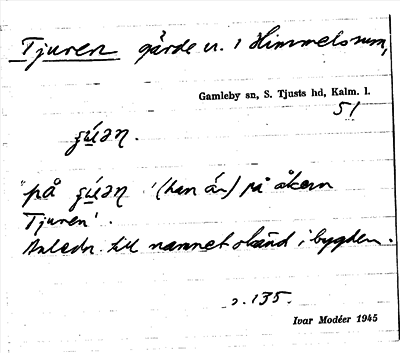 Tjuren gärde n. i Himmelsrum,
Gamleby sn, S. Tjusts hd, Kalm. l.
51
"på (han är) på åkern
Tjuren'.
Anledn. till namnet okänd i bygden.
s. 135.
Ivar Modéer 1945